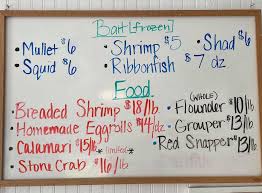 Bait [frozen]
• Mullet $6
• Shrimp $5
• Shad $6
• Squid $6
• Ribbonfish $7 dz
Food
• Breaded Shrimp $18/lb
(WHOLE)
• Flounder $10/lb
• Homemade Eggrolls $14/dz
• Grouper $13/lb
• Calamari $15/lb *limited*
• Red Snapper $13/lb
• Stone Crab $16/lb